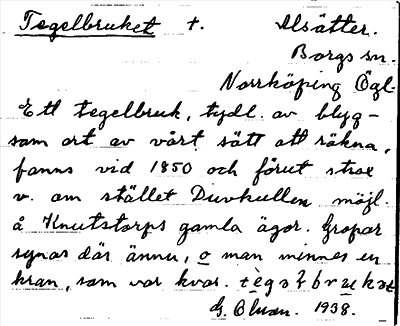 Tegelbruket t. Alsätter.
Borgs sn.
Norrköping Ögl.
Ett tegelbruk, tydl. av blyg-
sam art av vårt sätt att räkna,
fanns vid 1850 och förut strax
v. om stället Duvkullen möjl.
å Knutstorps gamla ägor. Gropar
synas där ännu, o man minnes en
kran, som var kvar.
G. Oluan. 1938.